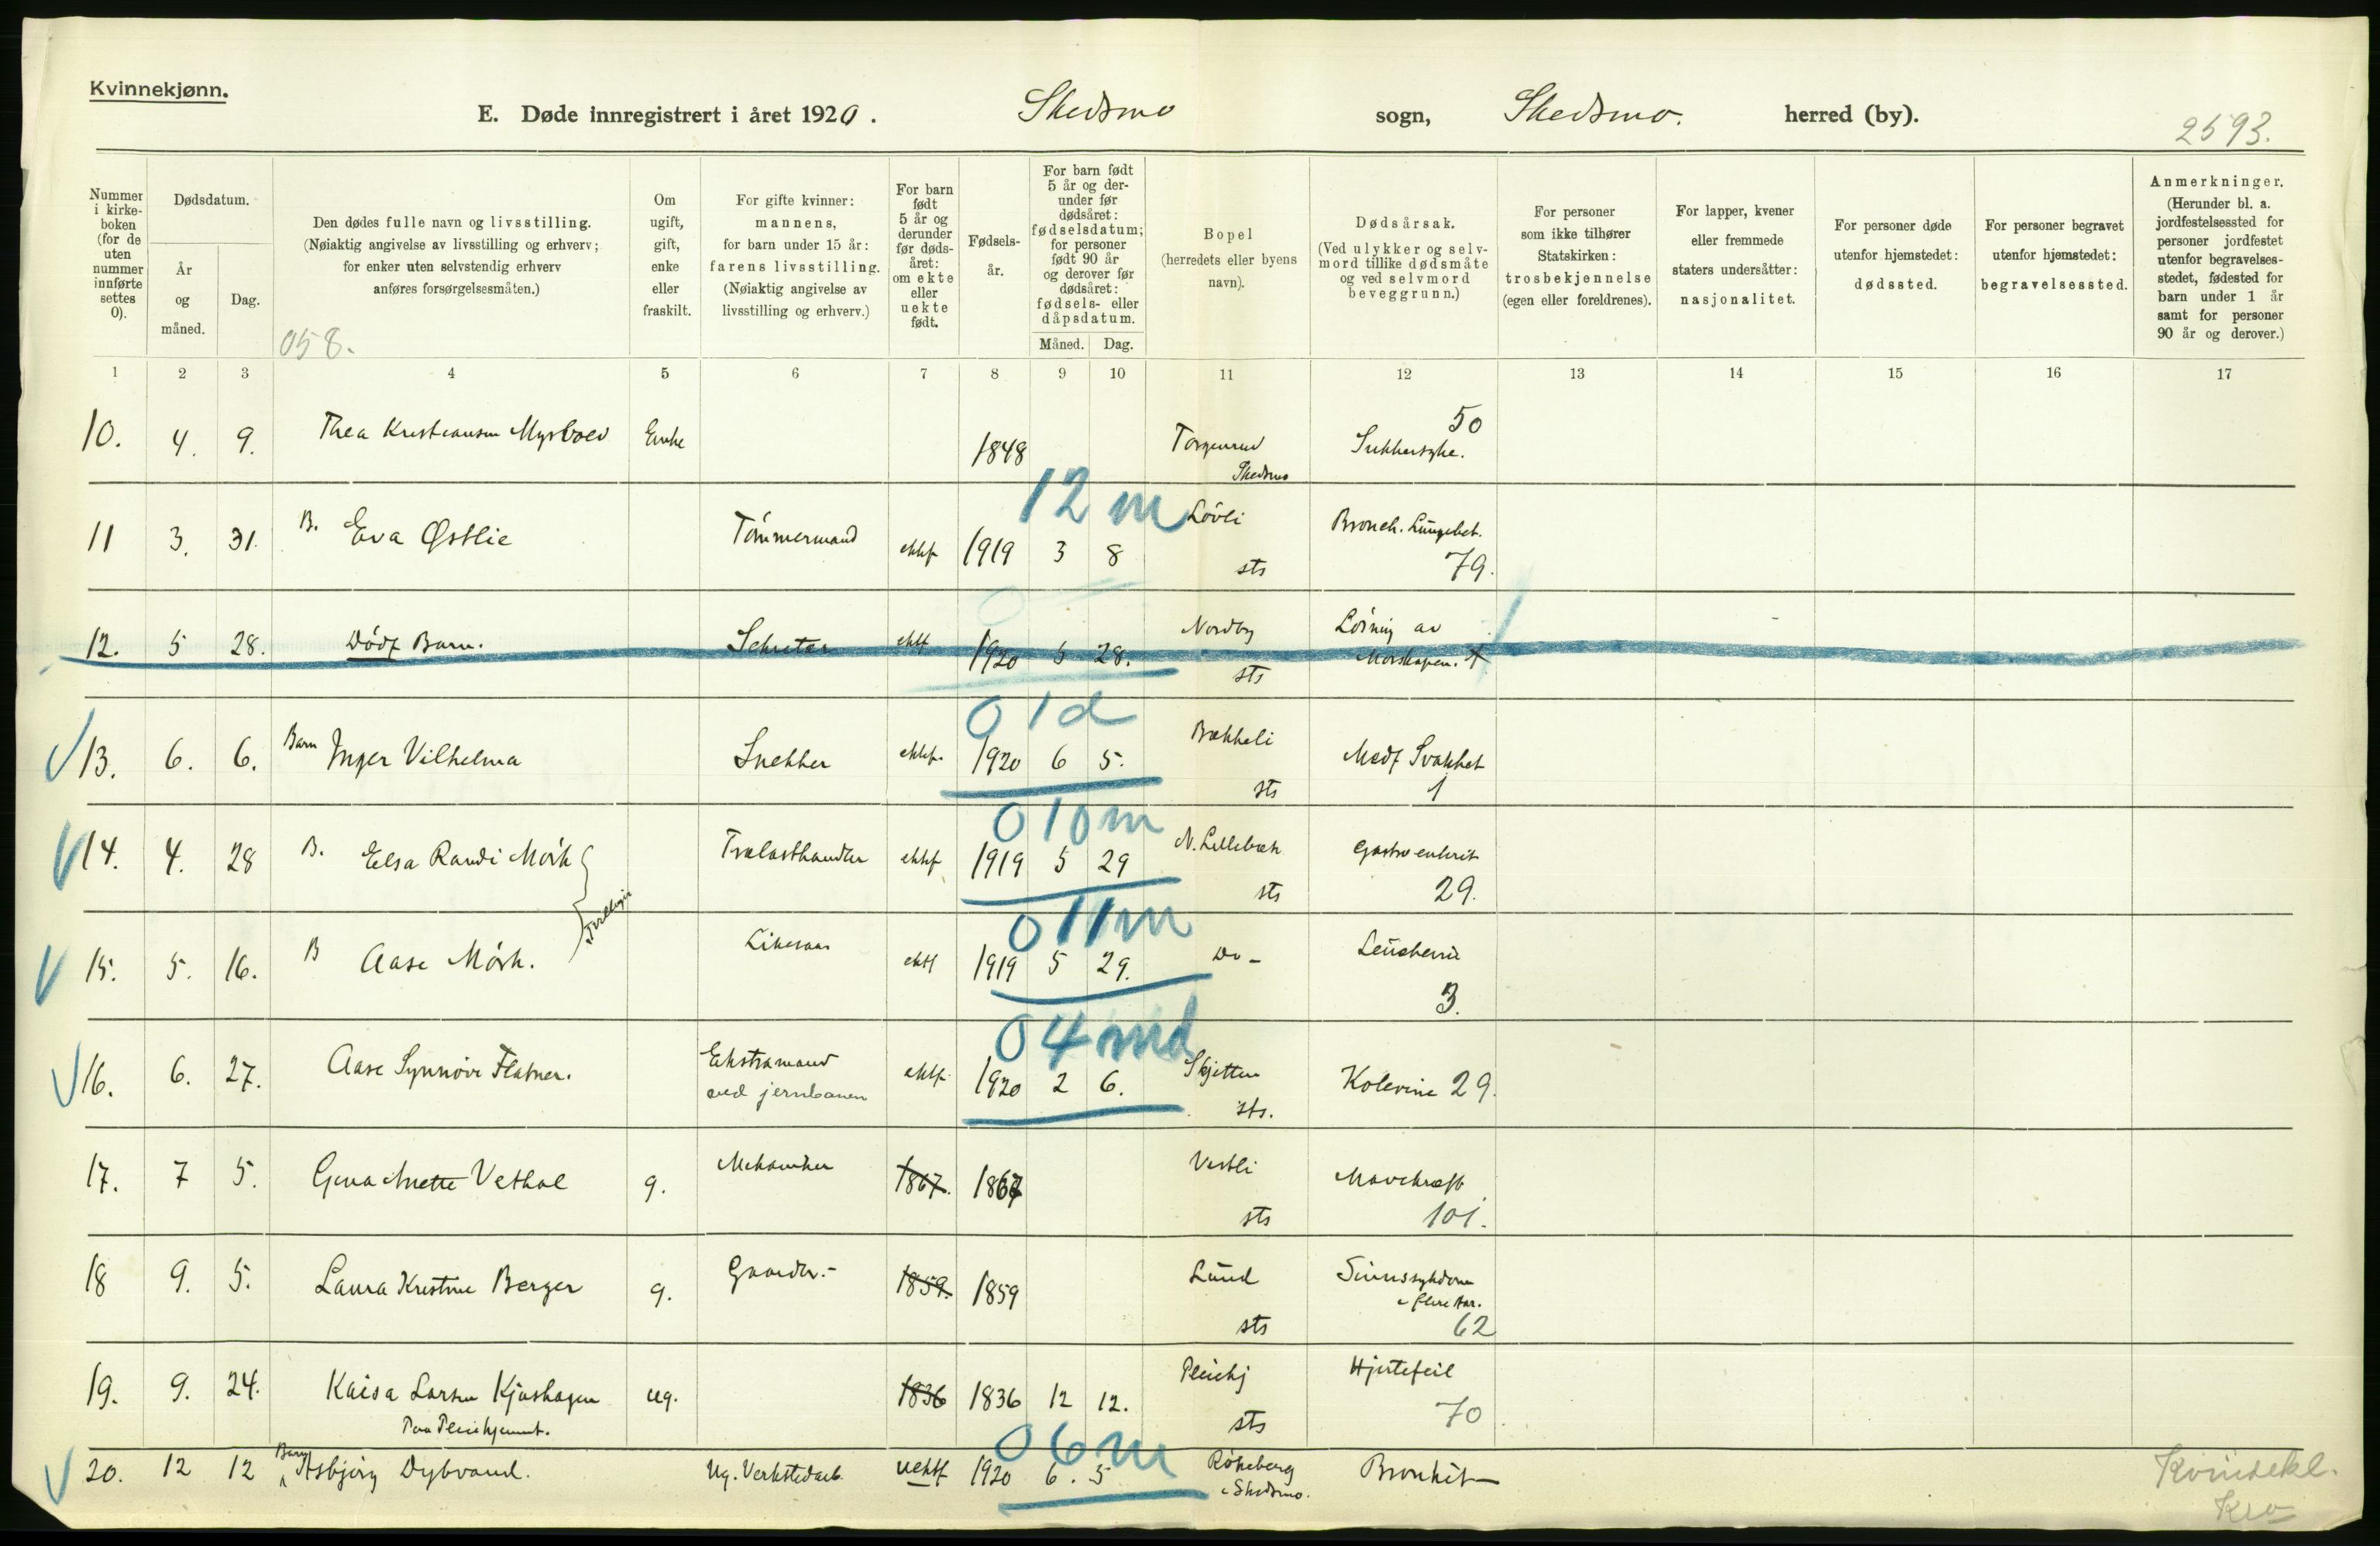 Kvinnekjønn.
E. Døde innregistrert i året 1920. Skedsmo sogn, Skedsmo. herred (by).
2593.
Nummer i kirke-boken (for de uten nummer innførte settes 0).
Dødsdatum.
År og måned.
Dag.
Den dødes fulle navn og livsstilling.
(Nøiaktig angivelse av livsstilling og erhverv;
for enker uten selvstendig erhverv
anføres forsørgelsesmåten.)
058.
Om ugift, gift, enke eller fraskilt.
For gifte kvinner:
mannens,
for barn under 15 år:
farens livsstilling.
(Nøiaktig angivelse av
livsstilling og erhverv.)
For barn født 5 år og derunder før døds-året: om ekte eller uekte født.
Fødsels-år.
For barn født 5 år og der-under før dødsåret: fødselsdatum; for personer født 90 år og derover før dødsåret: fødsels- eller dåpsdatum.
Måned. Dag.
Bopel
(herredets eller byens
navn).
Dødsårsak.
(Ved ulykker og selv-
mord tillike dødsmåte
og ved selvmord
beveggrunn.)
For personer
som ikke tilhører
Statskirken:
trosbekjennelse
(egen eller foreldrenes).
For lapper, kvener
eller fremmede
staters undersåtter:
nasjonalitet.
For personer døde
utenfor hjemstedet:
dødssted.
For personer begravet
utenfor hjemstedet:
begravelsessted.
Anmerkninger.
(Herunder bl. a.
jordfestelsessted for
personer jordfestet
utenfor begravelses-
stedet, fødested for
barn under 1 år
samt for personer
90 år og derover.)
1 2 3 4 5 6 7 8 9 10 11 12 13 14 15 16 17
10. 4. 9. Thea Kristiansen Enke 1848 Skedsmo Sukkersyke. 50
12 m
11 3. 31. B. Eva Østlie Tömmermand ektef 1919 3 8 Lövli sts Bronch. Lungebet. 79.
12. 5 28. Dödf Barn. Sekretær ektf 1920 5 28. Nordby sts Lösning av Morskaken. +
0 1 d
13. 6. 6. Barn Inger Vilhelma Snekker ektef. 1920 6 5. Bækkeli sts Medf Svakhet 1
0 10 m
14. 4. 28 B. Elsa Randi Mörk Trælasthandler ektef 1919 5 29 N. Lillebæk sts Gastroenterit 29.
Tvillinger
0 11 m
15. 5. 16. B Aase Mörk. Likesaa ektf 1919 5 29. Do - 3.
0 4 md
16. 6. 27. Aase Synnöve Flatner. Ekstramand ved jernbanen ektef. 1920 2 6. Skjetten sts. Kolerine 29.
17. 7 5. Gina Anette Vethal g. Mekaniker 1867. 1867 Vestli sts Mavekræft 101.
18 9. 5. Laura Kristine Berger g. Gaardbr.- 1859. 1859 Lund sts Sinnssykdom i flere Aar. 62
19. 9. 24. Kaisa Larsen Kjushagen ug. 1836 1836 12 12. Pleiehj sts Hjertefeil 70
Paa Pleiehjemmet.
0 6 m
20. 12 12 Barn Asbjörg Dybvand. Ug. Verkstedarb. uektf 1920 6. 5 Rökeberg i Skedsmo. Bronkit
Kvindekl.
Kro